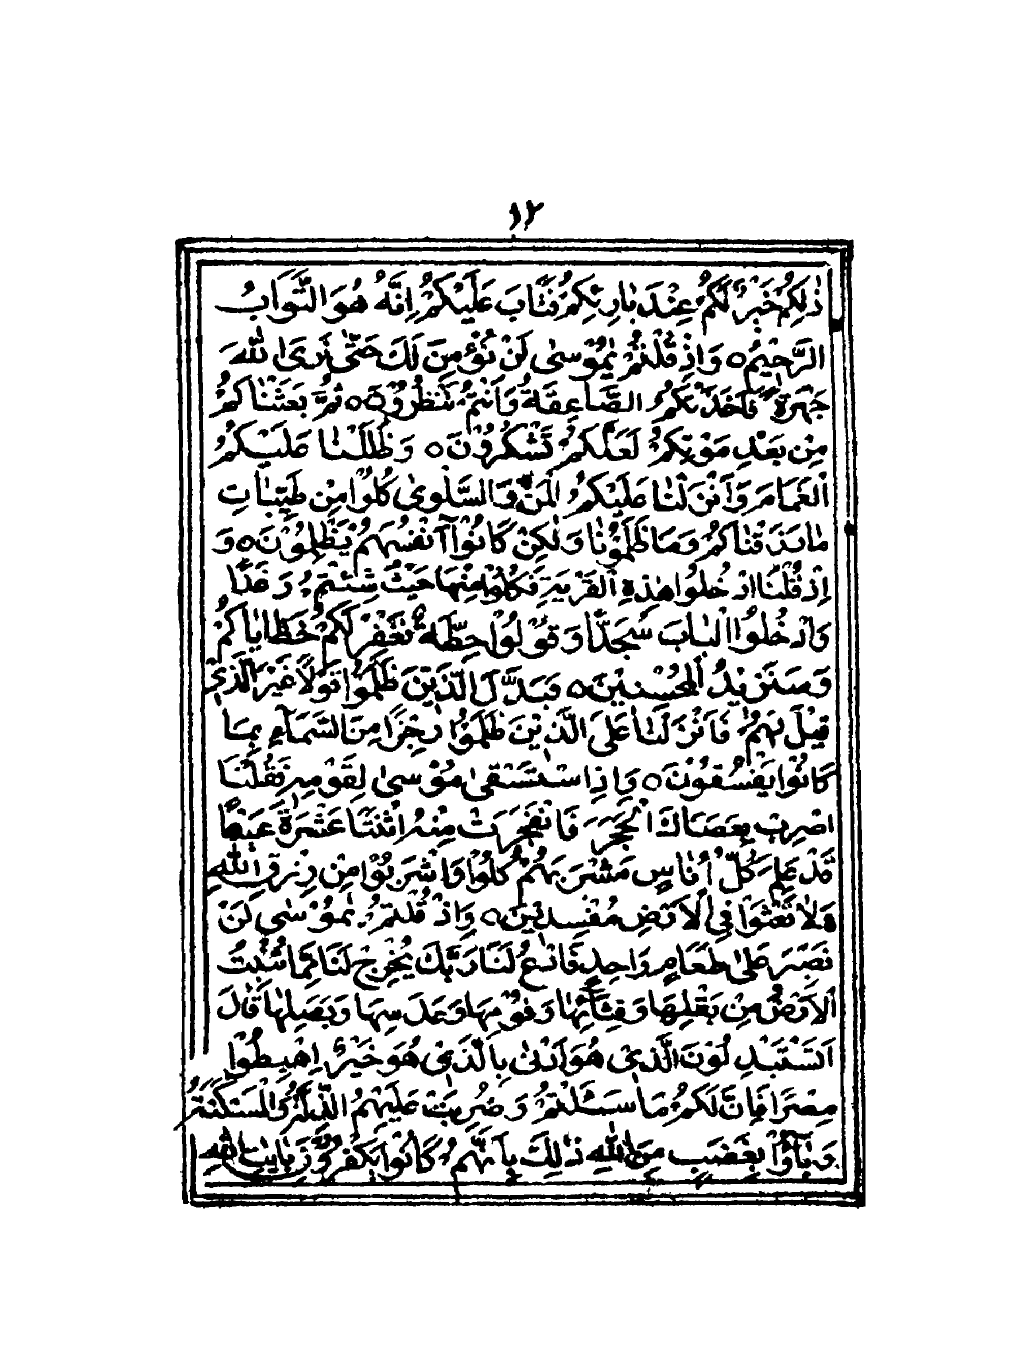 ١٢
ذٰلِكُمْ خَيْرٌ لَّكُمْ عِنْدَ بَارِئِكُمْ فَتَابَ عَلَيْكُمْ اِنَّهٗ هُوَ التَّوَّابُ
الرَّحِيْمُ ○ وَاِذْ قُلْتُمْ يٰمُوْسٰى لَنْ نُّؤْمِنَ لَكَ حَتّٰى نَرَى اللّٰهَ
جَهْرَةً فَاَخَذَتْكُمُ الصَّاعِقَةُ وَاَنْتُمْ تَنْظُرُوْنَ ○ ثُمَّ بَعَثْنَاكُمْ
مِنْ بَعْدِ مَوْتِكُمْ لَعَلَّكُمْ تَشْكُرُوْنَ ○ وَظَلَّلْنَا عَلَيْكُمُ
الْغَمَامَ وَاَنْزَلْنَا عَلَيْكُمُ الْمَنَّ وَالسَّلْوٰى كُلُوْا مِنْ طَيِّبَاتِ
مَا رَزَقْنَاكُمْ وَمَا ظَلَمُوْنَا وَلٰكِنْ كَانُوْۤا اَنْفُسَهُمْ يَظْلِمُوْنَ ○ وَ
اِذْ قُلْنَا ادْخُلُوْا هٰذِهِ الْقَرْيَةَ فَكُلُوْا مِنْهَا حَيْثُ شِئْتُمْ رَغَدًا
وَّادْخُلُوا الْبَابَ سُجَّدًا وَّقُوْلُوْا حِطَّةٌ نَّغْفِرْ لَكُمْ خَطَايَاكُمْ
وَسَنَزِيْدُ الْمُحْسِنِيْنَ ○ فَبَدَّلَ الَّذِيْنَ ظَلَمُوْا قَوْلًا غَيْرَ الَّذِيْ
قِيْلَ لَهُمْ فَاَنْزَلْنَا عَلَى الَّذِيْنَ ظَلَمُوْا رِجْزًا مِّنَ السَّمَآءِ بِمَا
كَانُوْا يَفْسُقُوْنَ ○ وَاِذِ اسْتَسْقٰى مُوْسٰى لِقَوْمِهٖ فَقُلْنَا
اضْرِبْ بِعَصَاكَ الْحَجَرَ فَانْفَجَرَتْ مِنْهُ اثْنَتَا عَشْرَةَ عَيْنًا
قَدْ عَلِمَ كُلُّ اُنَاسٍ مَّشْرَبَهُمْ كُلُوْا وَاشْرَبُوْا مِنْ رِّزْقِ اللّٰهِ
وَلَا تَعْثَوْا فِى الْاَرْضِ مُفْسِدِيْنَ ○ وَاِذْ قُلْتُمْ يٰمُوْسٰى لَنْ
نَّصْبِرَ عَلٰى طَعَامٍ وَّاحِدٍ فَادْعُ لَنَا رَبَّكَ يُخْرِجْ لَنَا مِمَّا تُنْبِتُ
الْاَرْضُ مِنْ بَقْلِهَا وَقِثَّآئِهَا وَفُوْمِهَا وَعَدَسِهَا وَبَصَلِهَا قَالَ
اَتَسْتَبْدِلُوْنَ الَّذِىْ هُوَ اَدْنٰى بِالَّذِىْ هُوَ خَيْرٌ اِهْبِطُوْا
مِصْرًا فَاِنَّ لَكُمْ مَّا سَاَلْتُمْ وَضُرِبَتْ عَلَيْهِمُ الذِّلَّةُ وَالْمَسْكَنَةُ
وَبَآءُوْا بِغَضَبٍ مِّنَ اللّٰهِ ذٰلِكَ بِاَنَّهُمْ كَانُوْا يَكْفُرُوْنَ بِاٰيٰتِ اللّٰهِ